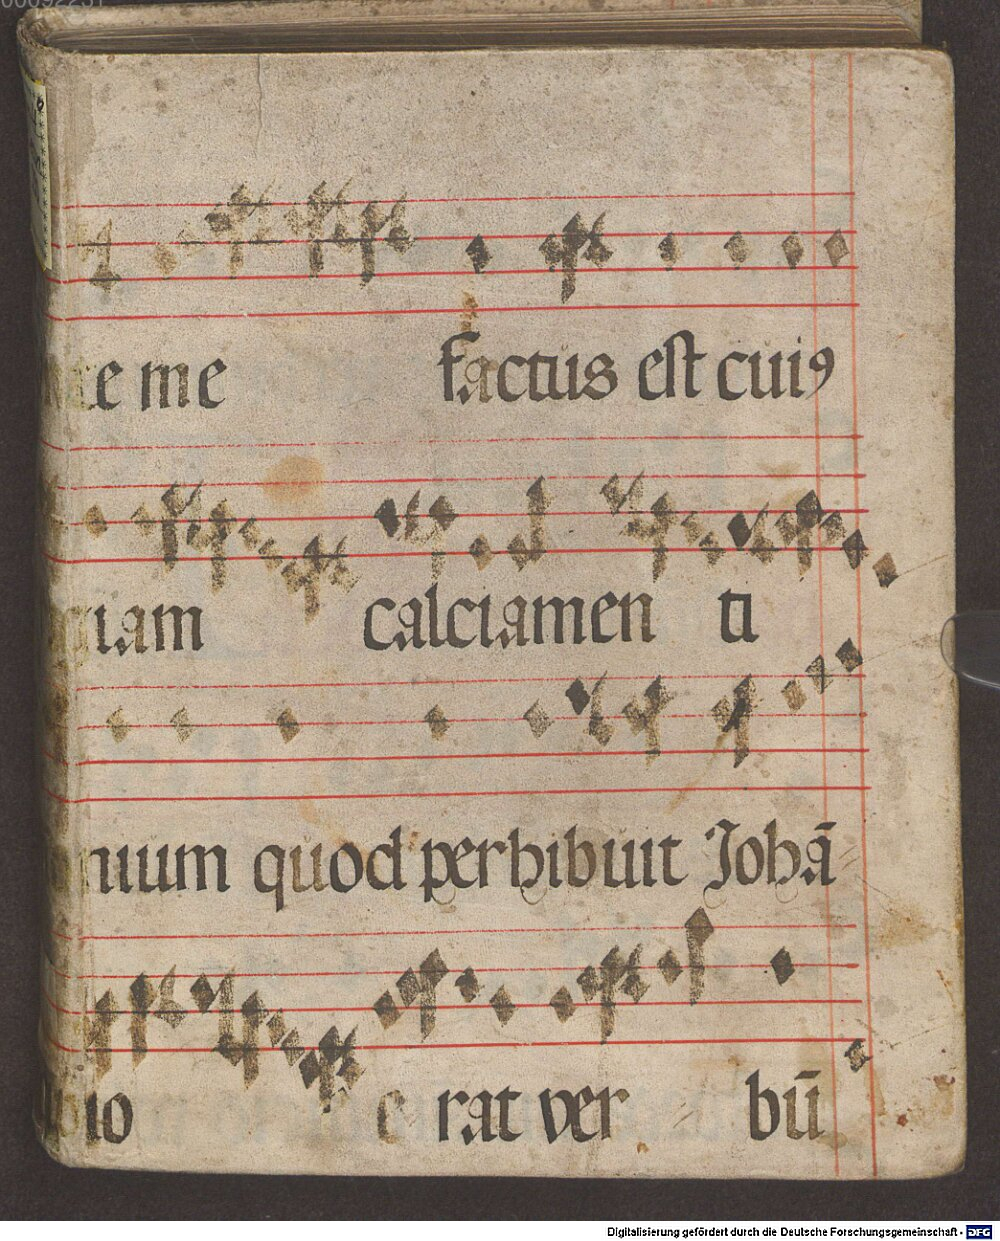 e me factus est cuiꝯ
iam calciamen ti
nium quod perhibuit Johā
io e rat ver bū
Digitalisierung gefördert durch die Deutsche Forschungsgemeinschaft - DFG